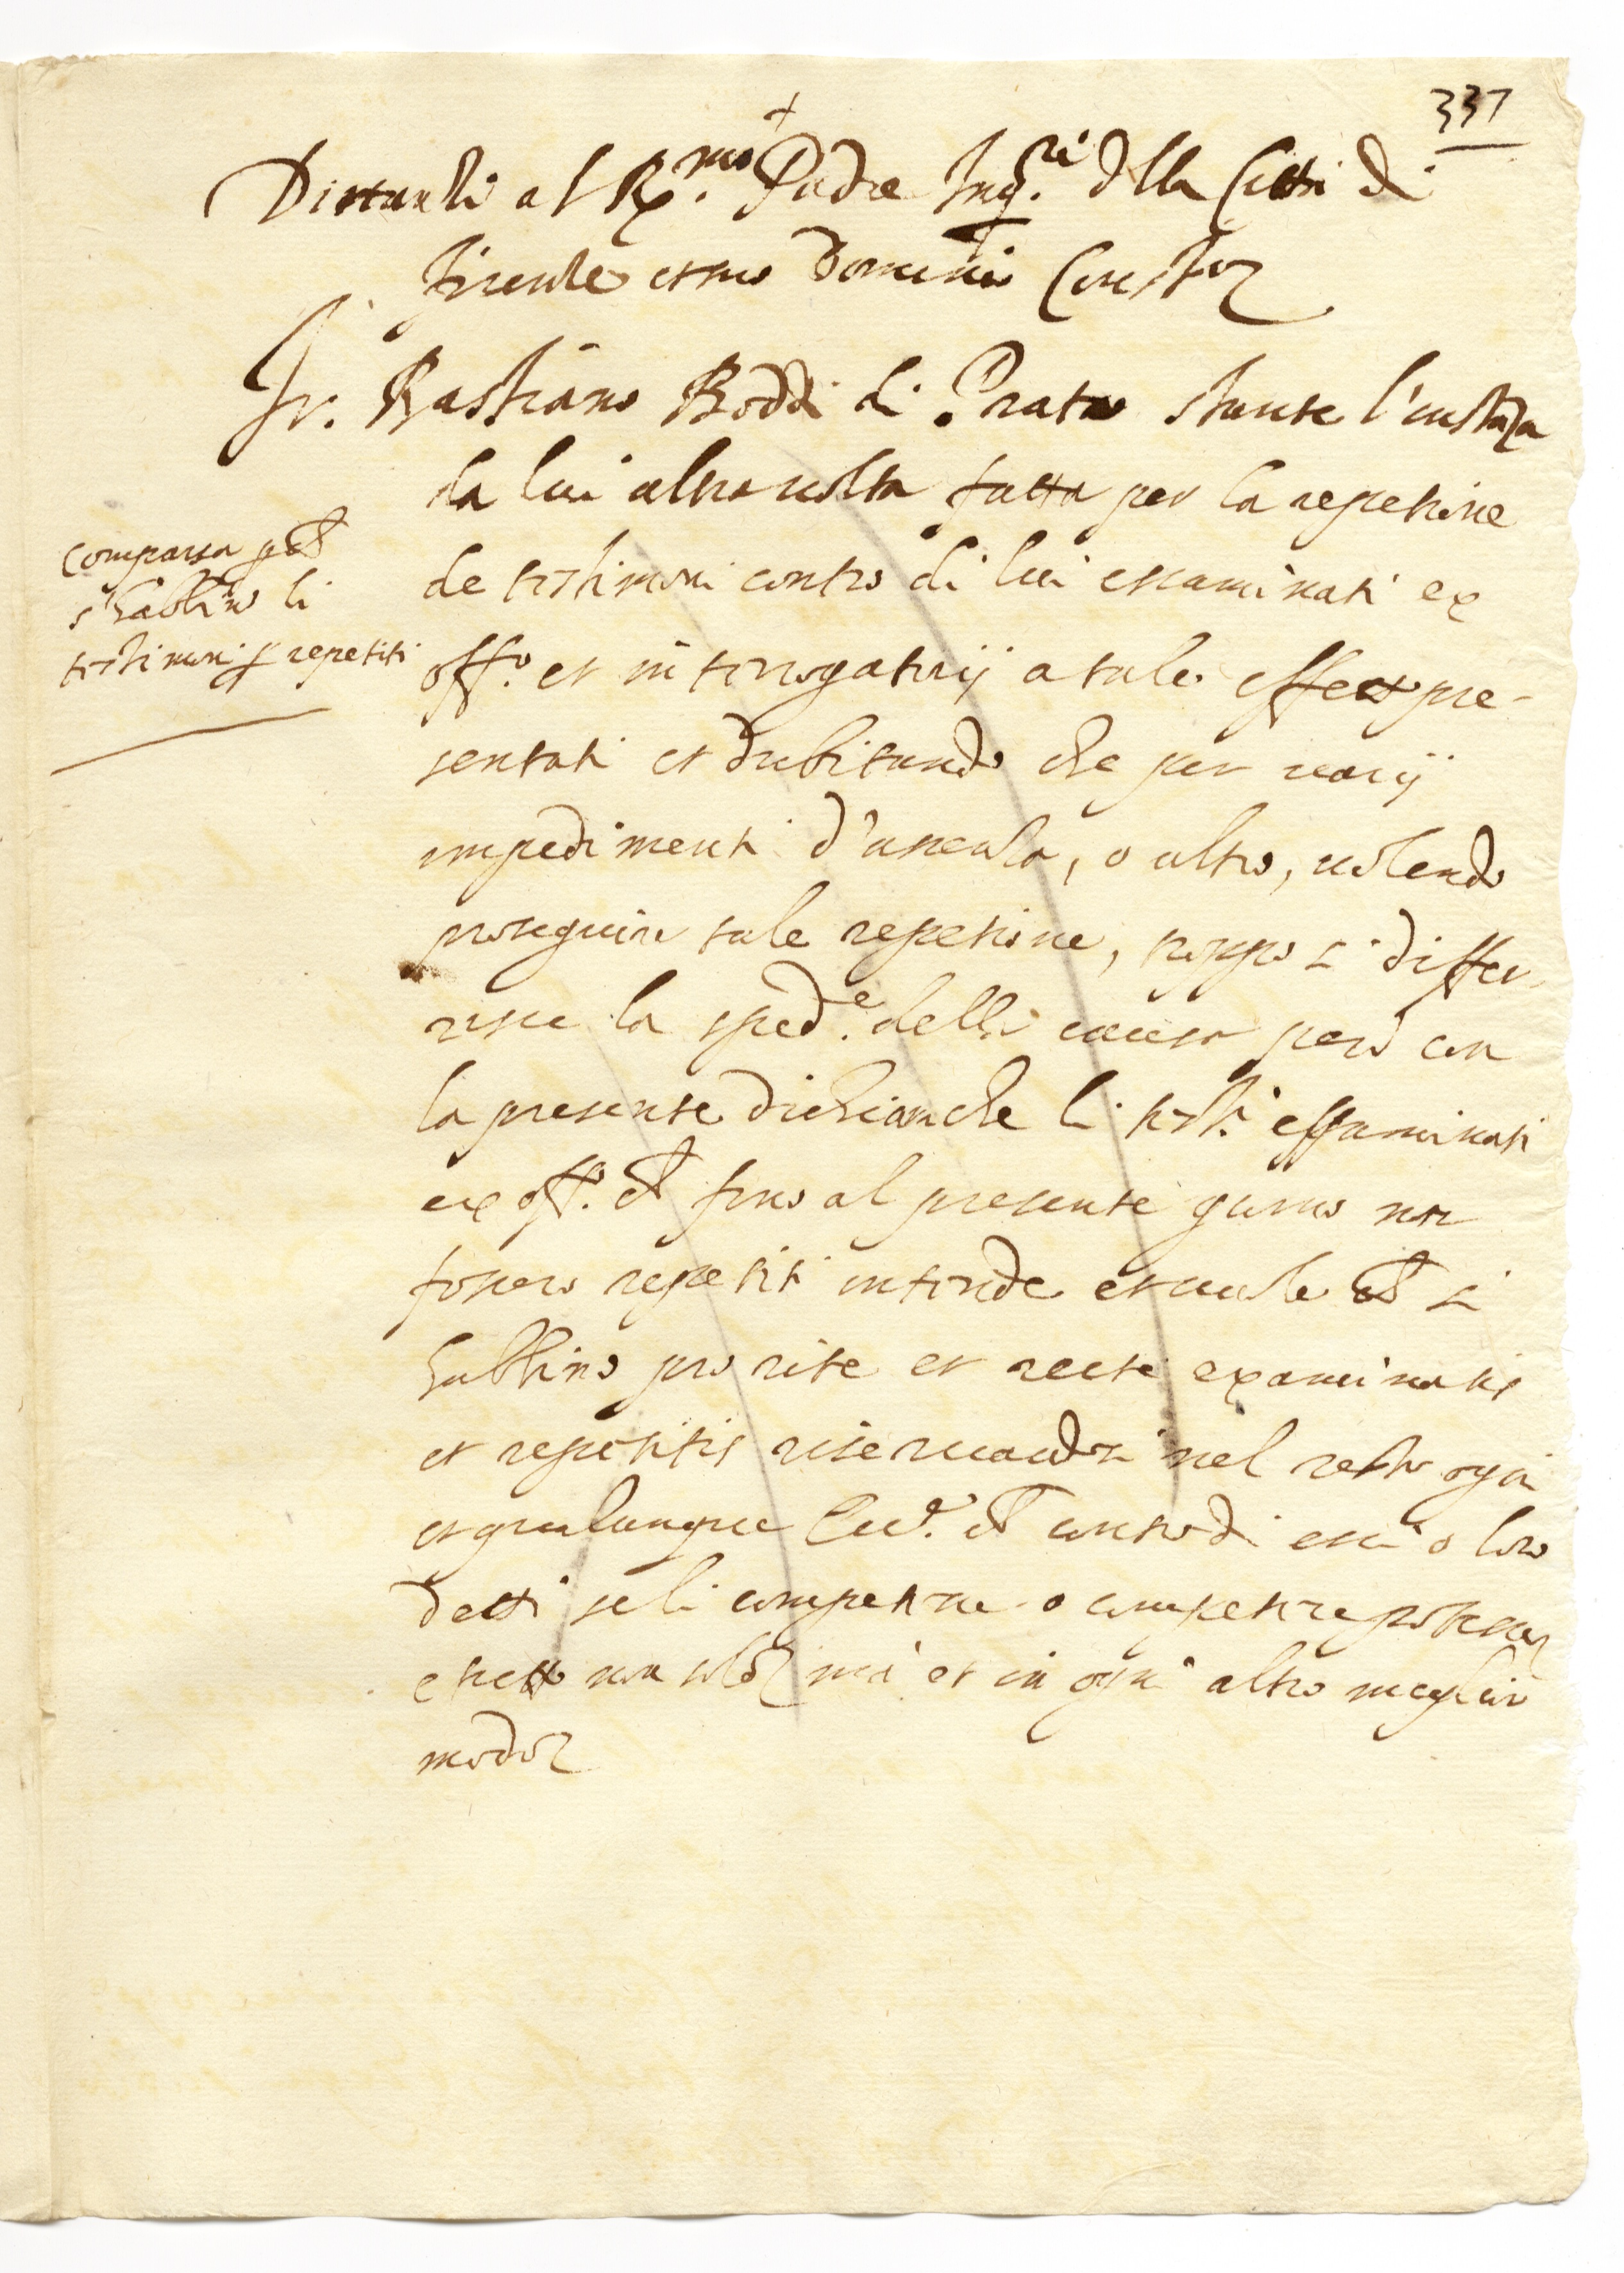 337
+
Dinanzi al R.mo Padre Inq.re della Città di
Firenze et suo Dominio
Fr. Bastiano Boddi di Prato stante l'instanza
da lui altra volta fatta per la repetitione
de testimoni contro di lui essaminati ex
off.o et interrogatorij a tale effetto pre-
sentati et dubitando che per varij
impedimenti d'assenza, o altro, volendo
proseguire tale repetitione, troppo si differ-
isca la sped.e della causa però con
la presente dichiara che li test.i essaminati
ex off.o fino al presente giorno non
fossero repetiti intende et vuole si
habbino pro rite et recte examinatis
et repetitis riservandosi nel resto ogni
et qualunque contro di essi o loro
detti se li compet o compet
non ma et in ogni altro meglior
modo
comparsa
s'habbino li
testimonij p repetiti